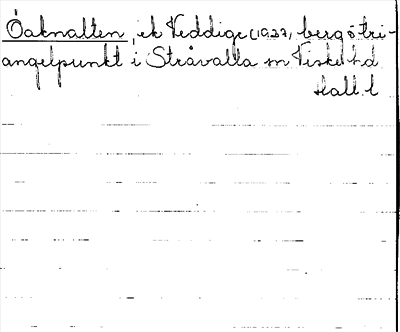 Öaknatten, ek Veddige (1937, berg ö tri-
angelpunkt i Stråvalla sn Viske hd
Hall. l